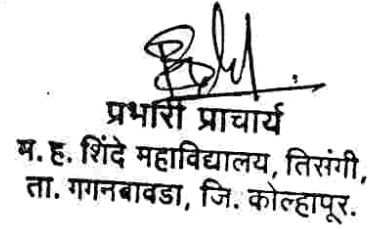 प्रभारी प्राचार्य
म. ह. शिंदे महाविद्यालय, तिसंगी,
ता. गगनबावडा, जि. कोल्हापूर.